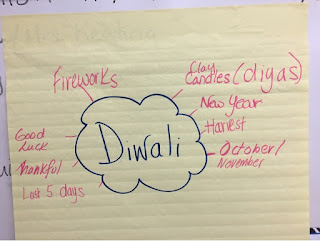 Fireworks
Clay
Candles (diyas)
New Year
Harvest
October/
November
Diwali
Good
Luck
Thankful
Last 5 days